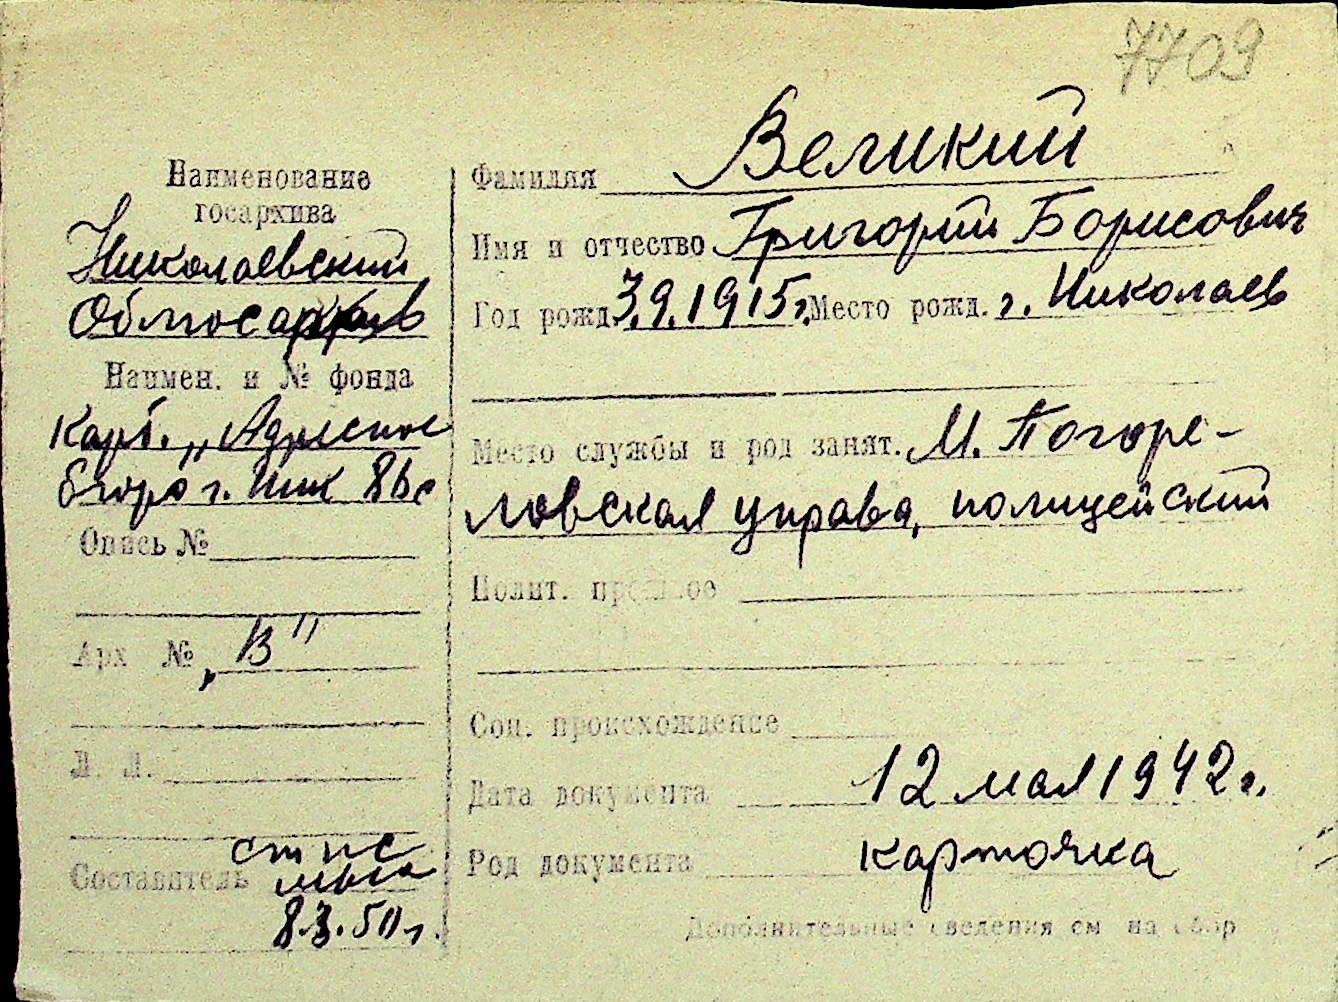 7709
Наименование
госархива
Николаевский
Облгосархив
Наимен. и № фонда
Карт. „Адресное
бюро г. Ник
Опись №
Арх № „В"
Л. Л.
Составитель
8.3.50 г.
Фамилия Великий
Имя и отчество Григорий Борисович
Год рожд. 3.9.1915 г. Место рожд. г. Николаев
Место службы и род занят. М. Погоре-
ловская управа, полицейский
Полит. прошлое
Соц. происхождение
Дата документа 12 мая 1942 г.
Род документа карточка
Дополнительные сведения см на обор